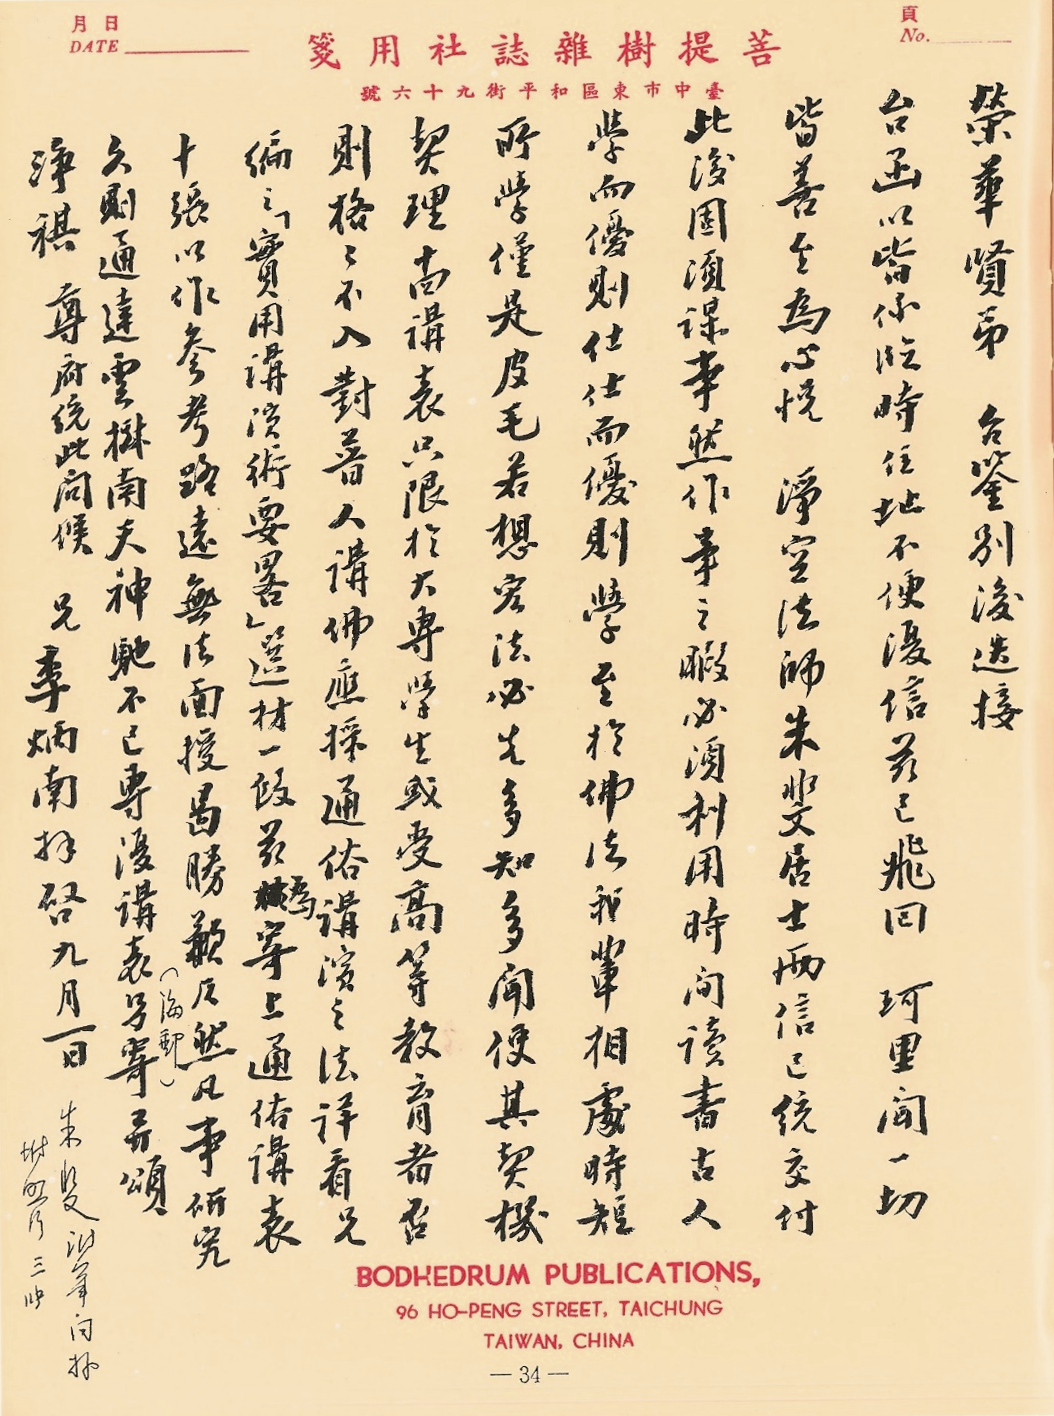 頁
No.
月 日
DATE
菩提樹雜誌社用箋
臺中市東區和平街九十六號
榮華賢弟 台鋻別後迭接
台函以皆係臨時住地不便復信茲已飛回 珂里闔一切
皆善至為心悅 淨空法師朱斐居士兩信已統交付
此後固須謀事然作事之暇必須利用時間讀書古人
學而優則仕仕而優則學至於佛法我輩相處時短
所學僅是皮毛若想宏法必先多知多聞使其契機
契理尚講表只限於大專學生或受高等教育者否
則格之不入對普人講佛應採通俗講演之法詳看兄
編之「實用講演術要畧」選材一段茲為寄上通俗講表
十張以作參考路遠無法面授曷勝歉仄然凡事研究
久則通達雲樹南天神馳不已專復講表另寄(海郵)并頌
淨祺 尊府統此問候 兄 李炳南拜啓九月一日
朱斐附筆問好
附照片三帧
BODHEDRUM PUBLICATIONS,
96 HO-PENG STREET, TAICHUNG
TAIWAN, CHINA
— 34 —